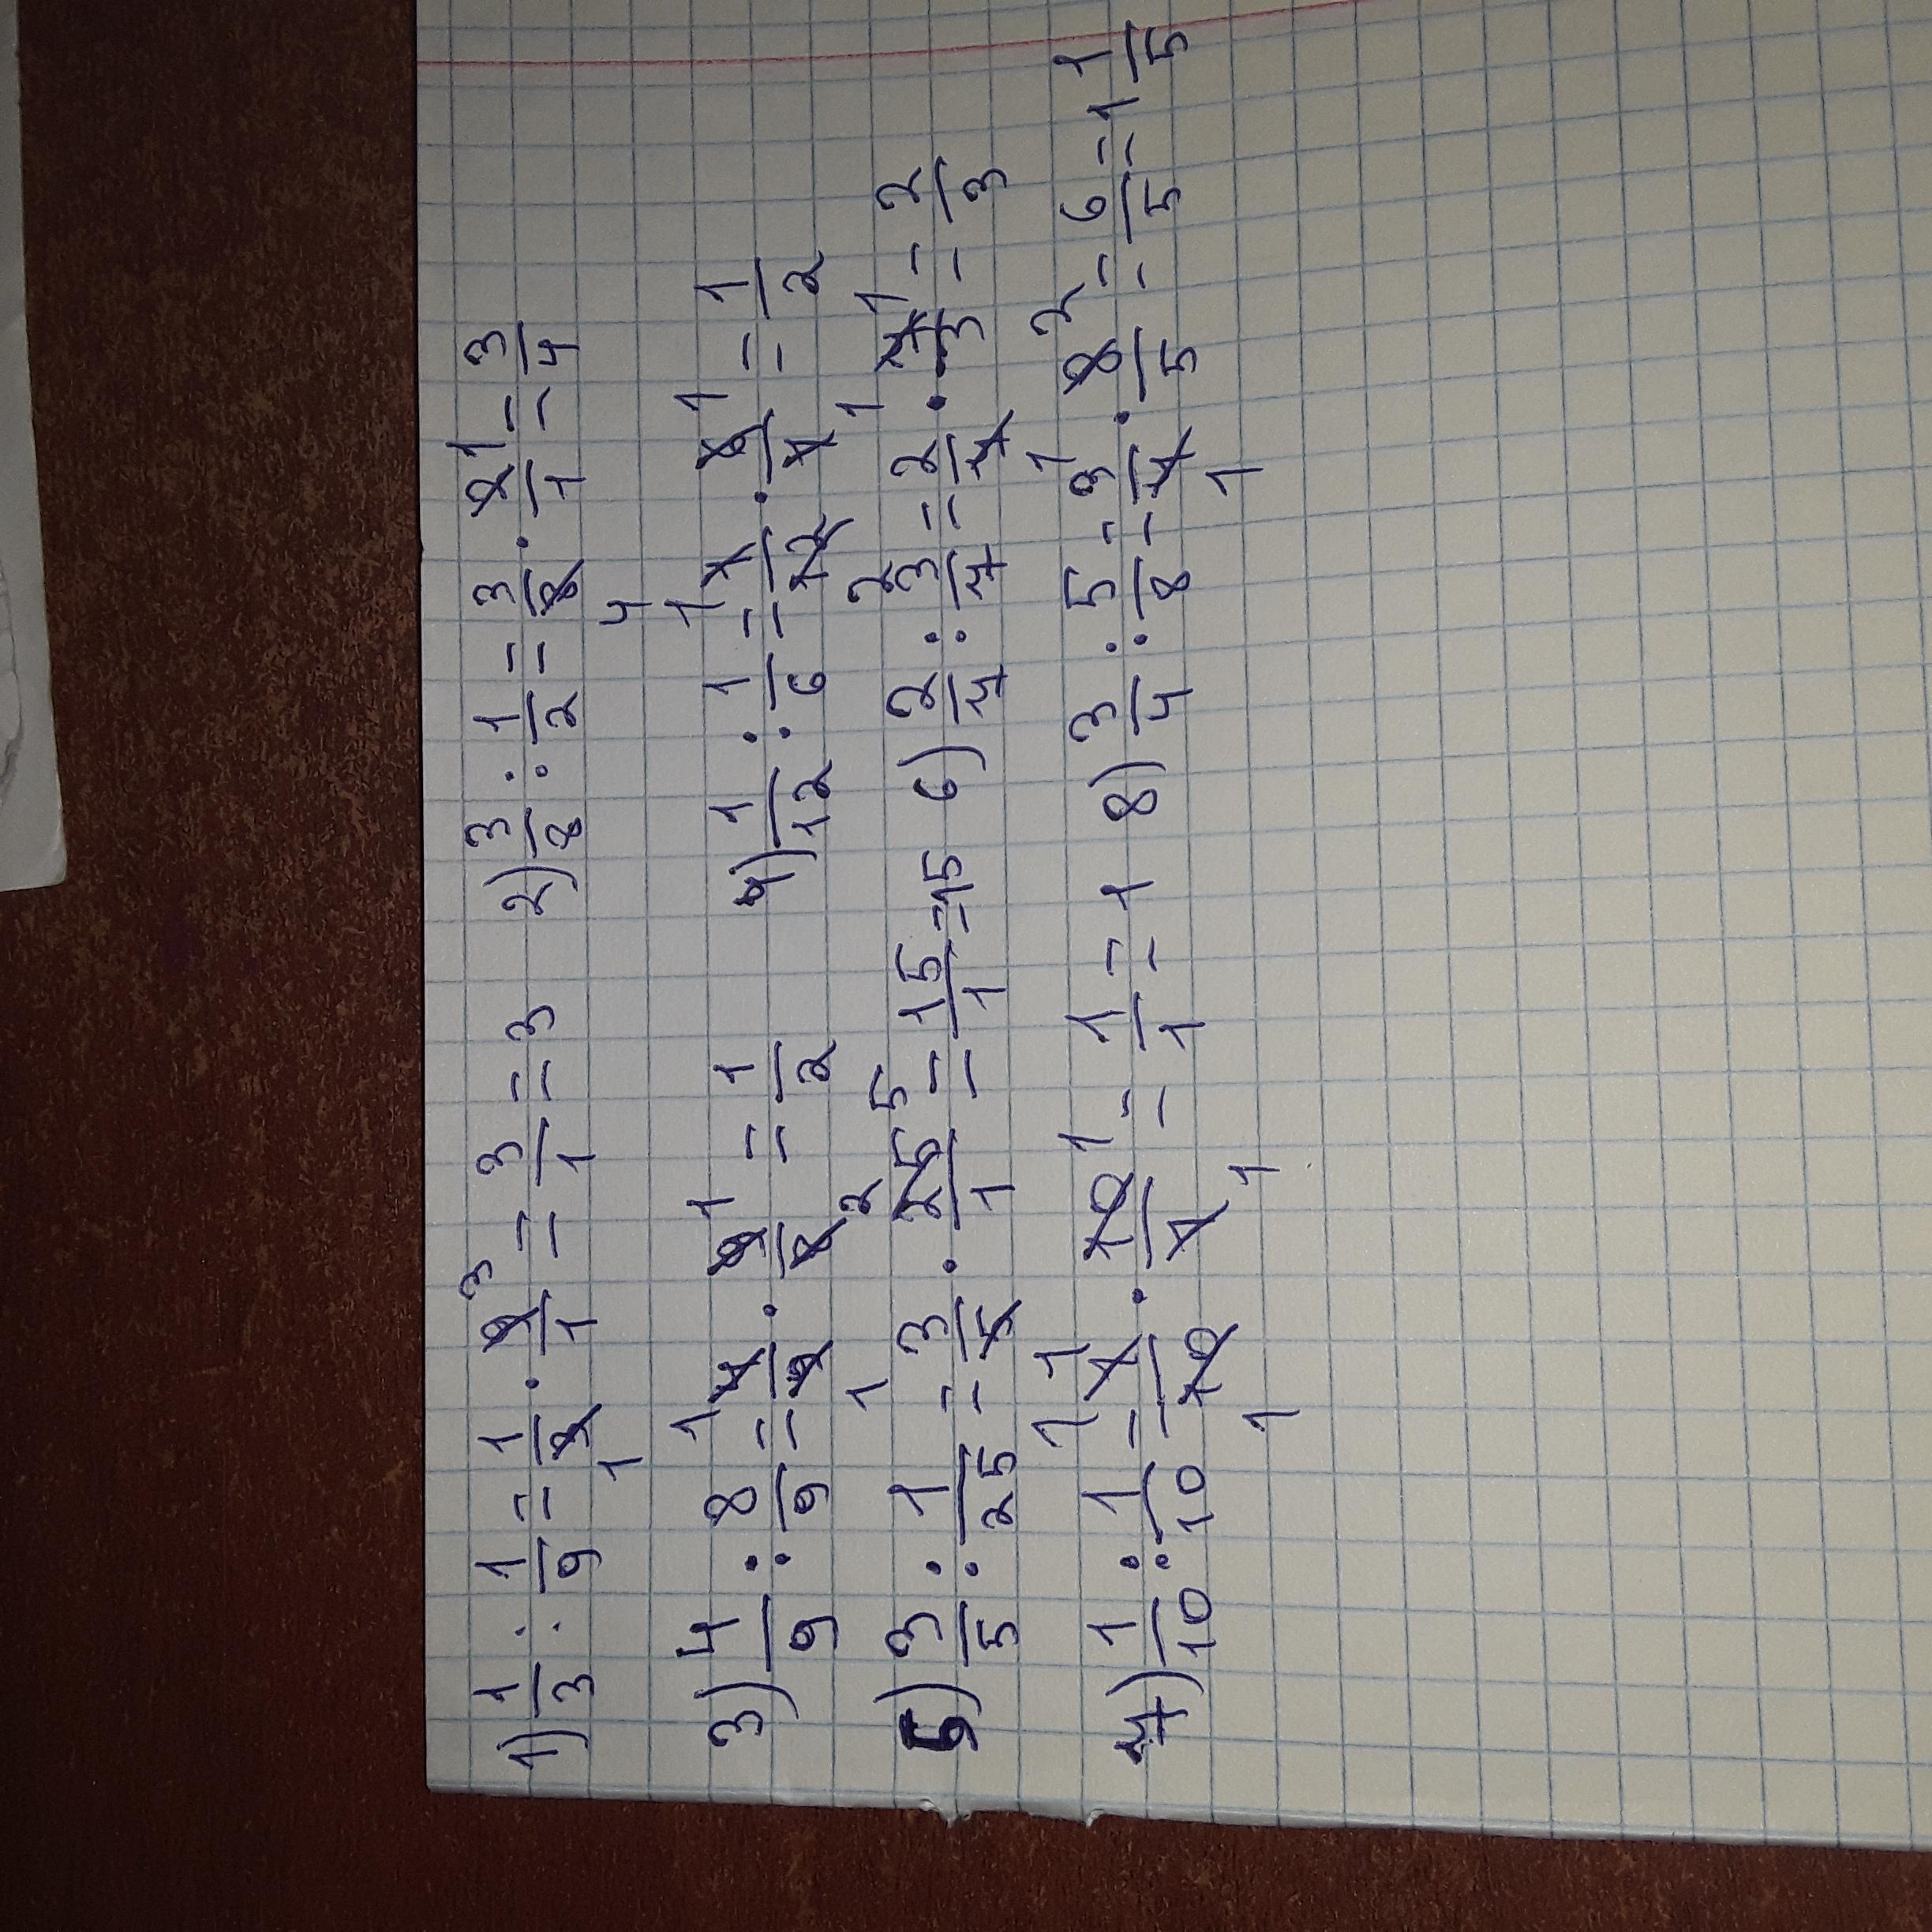 1) 1/3 : 1/9 = 1/3 · 9/1 = 3/1 = 3 2) 3/8 : 1/2 = 3/8 · 2/1 = 3/4
3) 4/9 : 8/9 = 4/9 · 9/8 = 1/2 4) 1/12 : 1/6 = 1/12 · 6/1 = 1/2
5) 3/5 : 1/25 = 3/5 · 25/1 = 15/1 = 15 6) 2/7 : 3/7 = 2/7 · 7/3 = 2/3
7) 1/10 : 1/10 = 1/10 · 10/1 = 1/1 = 1 8) 3/4 : 5/8 = 3/4 · 8/5 = 6/5 = 1 1/5